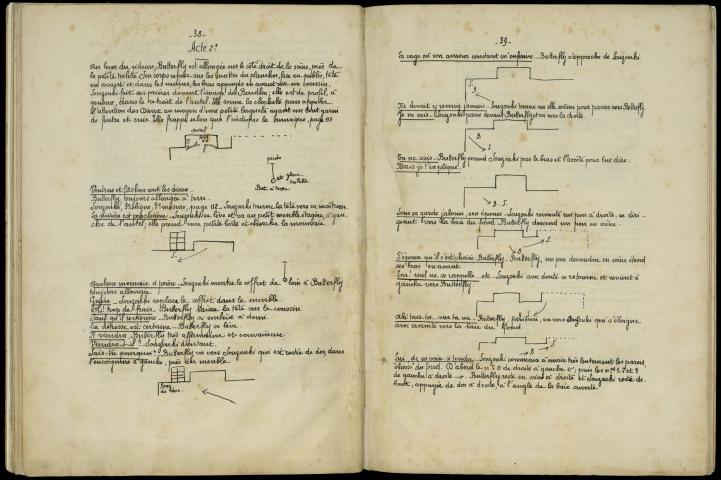 - 38 -
Acte 2ᵈ
Au lever du rideau, Butterfly est allongée sur le côté droit de la scène, près de
la petite toilette. Son corps repose sur les nattes du plancher, face au public, tête
en avant et dans les mains, les bras appuyés en avant sur un coussin.
Souzouki fait ses prières devant l'image du Bouddha, elle est de profil, à
genoux, dans le retrait de l'autel. Elle sonne la clochette pour appeler
l'attention des Dieux au moyen d'une petite baguette ayant un bout garni
de feutre et cuir. Elle frappe selon que l'indique la musique, page 110
autel
S. à g.
pieds
glace
toilette
But. à terre
Ventrus et lâches sont les dieux.
Butterfly toujours allongée à terre.
Souzouki, page 112 - Souzouki tourne la tête vers sa maîtresse.
La misère est prochaine - Souzouki se lève et va au petit meuble étagère, à gau-
che de l'autel, elle prend une petite boîte et cherche la monnaie
S.
Quelque monnaie à peine - Souzouki montre le coffret de loin à Butterfly
toujours allongée.
Guère - Souzouki replace le coffret dans le meuble.
Ah! trop de frais - Butterfly laisse la tête sur le coussin.
Sauf qu'il revienne - Butterfly se soulève à demi.
La détresse est certaine - Butterfly se lève
Il viendra - Butterfly très affirmative et convaincue
Viendra-t-il? Souzouki doutant.
Sais-tu pourquoi? Butterfly va vers Souzouki qui est restée de dos, dans
l'encoignure à gauche, près du meuble
Souz.
de dos
- 39 -
La cage où son amour constant m'enferme - Butterfly s'approche de Souzouki.
S.
B
Ne devait y revenir jamais - Souzouki
Je ne sais - Souzouki passe devant Butterfly et va vers la droite.
B
S.
Tu ne sais - Butterfly prend Souzouki par le bras et l'arrête pour lui dire:
Mais je t'explique
Sous sa garde jalouse, son épouse - Souzouki remonte un peu à droite, se diri-
geant vers la baie du fond. Butterfly descend un peu en scène.
B
S
L'épouse qu'il s'est choisie Butterfly - un peu descendue en scène étend
ses bras en avant.
Lui! nul ne se rappelle - etc. Souzouki avec doute se retourne et revient à
gauche vers Butterfly.
S.
Ah! tais-toi sur ta vie - Butterfly, va vers Souzouki qui s'éloigne
avec crainte vers la baie du fond.
S
B
Lui, de sa voix si tendre - Souzouki commence à ouvrir très lentement les parois,
châssis du fond. D'abord le n° 2 de droite à gauche ←; puis les nᵒˢ 1 et 3
de gauche à droite →. Butterfly reste en scène à droite et Souzouki reste de-
bout, appuyée de dos à droite, à l'angle de la baie ouverte.